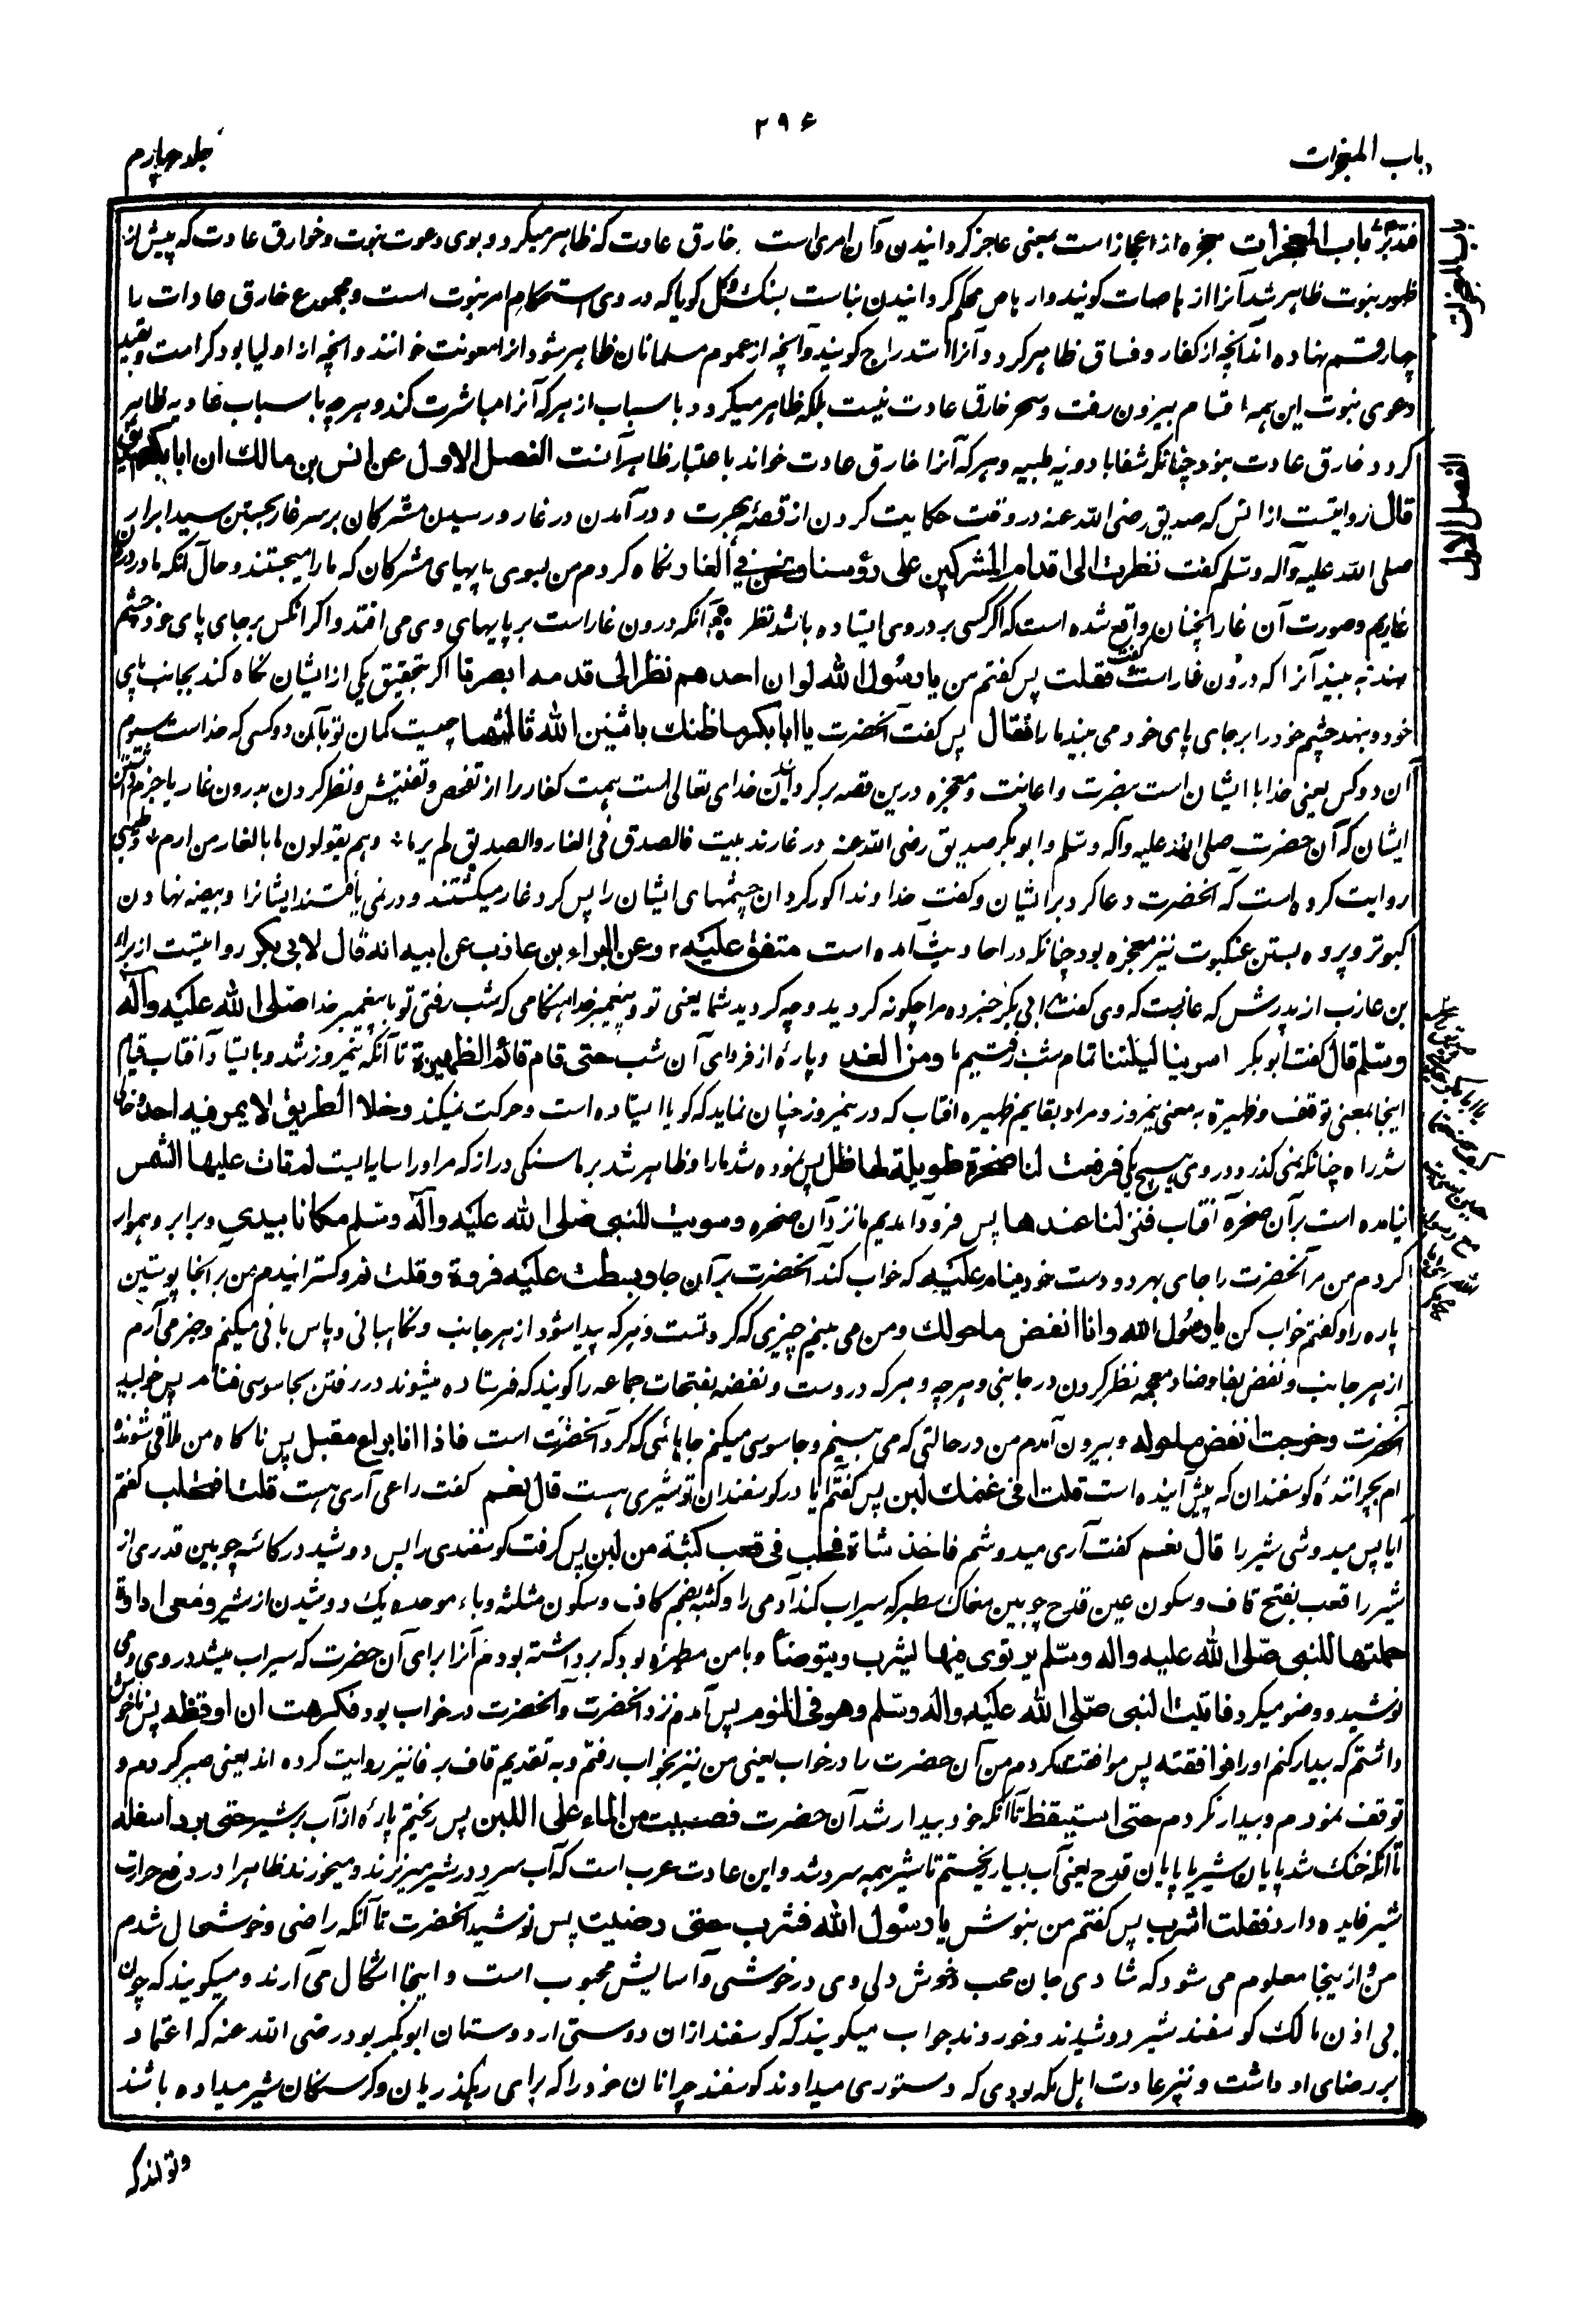 ۲۹۶
باب المعجزات
جلد چهارم
فتدبر باب المعجزات معجزه از اعجاز است بمعنی عاجز کردانیدن و آن امری است خارق عادت که ظاهر میکردد بوی دعوت نبوت و خوارق عادت که پیش از
ظهور نبوت ظاهر شد آنرا ارهاصات کویند و ارهاص محکم کردانیدن بناست بسنک و کل کویا که در وی استحکام امر نبوت است و مجموع خارق عادات را
چهار قسم نهاده اند آنچه از کفار و فساق ظاهر کردد آنرا استدراج کویند و آنچه از عموم مسلمانان ظاهر شود آنرا معونت خوانند و آنچه از اولیا بود کرامت و بقید
دعوی نبوت این همه اقسام بیرون رفت و سحر خارق عادت نیست بلکه ظاهر میکردد باسباب از هر که آنرا مباشرت کند و هر چه باسباب عادیه ظاهر
کردد خارق عادت نبود چنانکه شفا بادویه طبیه و هر که آنرا خارق عادت خواند باعتبار ظاهر آنست الفصل الاول عن انس بن مالك ان ابا بكر الصديق
قال روایتست از انس که صدیق رضی الله عنه در وقت حکایت کردن از قصهٔ هجرت و درآمدن در غار و رسیدن مشرکان بر سر غار بجستن سید ابرار
صلی الله علیه و آله و سلم کفت نظرت الى اقدام المشركين على رؤسنا ونحن في الغار نکاه کردم من بسوی پایهای مشرکان که ما را میجستند و حال آنکه ما در درون
غاریم و صورت آن غار آنچنان واقع شده است که اکر کسی بر در وی ایستاده باشد نظر آنکه درون غار است بر پایهای وی می افتد و اکر آنکس بر جای پای خود چشم
نهد نه بیند آنرا که درون غار است فقلت پس کفتم من يا رسول الله لو ان احدهم نظر الى قدمه ابصرنا اکر بتحقیق یکی از ایشان نکاه کند بجانب پای
خود و بنهد چشم خود را بر جای پای خود می بیند ما را فقال پس کفت آنحضرت يا ابا بكر ما ظنك باثنين الله ثالثهما چیست کمان تو بآن دو کسی که خداست سیوم
آن دو کس یعنی خدا با ایشان است بنصرت و اعانت و معجزه درین قصه برکردانیدن خدای تعالی است همت کفار را از تفحص و تفتیش و نظر کردن بدرون غار با جزم
ایشان که آن حضرت صلی الله علیه و آله و سلم و ابوبکر صدیق رضی الله عنه در غارند بیت فالصدق فی الغار والصدیق لم یرما وهم یقولون ما بالغار من ارم و طیبی
روایت کرده است که آنحضرت دعا کرد بر ایشان و کفت خداوندا کور کردان چشمهای ایشان را پس کرد غار میکشتند و در نمی یافتند ایشانرا و بیضه نهادن
کبوتر و پرده بستن عنکبوت نیز معجزه بود چنانکه در احادیث آمده است متفق عليه وعن البراء بن عازب عن ابيه انه قال لابي بكر روایتست از براء
بن عازب از پدرش که عازبست که وی کفت ابی بکر خبر ده مرا چکونه کردید و چه کردید شما یعنی تو و پیغمبر خدا هنکامی که شب رفتی تو با پیغمبر خدا صلى الله عليه وآله
وسلم قال کفت ابوبکر اسرينا ليلتنا تمام شب رفتیم ما ومن الغد و پارهٔ از فردای آن شب حتى قام قائم الظهيرة تا آنکه نیمروز شد و بایستاد آفتاب قیام
اینجا بمعنی توقف و ظهیرة به معنی نیمروز و مراد بقایم ظهیره آفتاب که در نیمروز چنان نماید که کویا ایستاده است و حرکت نمیکند وخلا الطريق لا يمر فيه احد و خالی
شد راه چنانکه نمی کذرد در وی هیچ یکی فرفعت لنا صخرة طويلة لها ظل پس نموده شد ما را و ظاهر شد بر ما سنکی دراز که مر او را سایه ایست لم تات عليها الشمس
نیامده است بر آن صخره آفتاب فنزلنا عندها پس فرود آمدیم ما نزد آن صخره وسويت للنبي صلى الله عليه وآله وسلم مكانا بيدي و برابر و هموار
کردم من مر آنحضرت را جای بهر دو دست خود ينام عليه که خواب کند آنحضرت بر آن جا وبسطت عليه فروة وقلت نم و کسترانیدم من بر آنجا پوستین
پاره را و کفتم خواب کن يا رسول الله وانا انفض ما حولك و من می بینم چیزی که کرد تست و هر که پیدا شود از هر جانب و نکاهبانی و پاس بانی میکنم و خبر می آرم
از هر جانب و نفض بفا و ضاد معجمه نظر کردن در جانبی و هر چه و هر که دروست و نفضه بفتحات جماعه را کویند که فرستاده میشوند در رفتن بجاسوسی فنام پس خوابید
آنحضرت وخرجت انفض ما حوله و بیرون آمدم من در حالتی که می بینم و جاسوسی میکنم جاهائی که کرد آنحضرت است فاذا انا براع مقبل پس ناکاه من ملاقی شونده
ام بچرانندهٔ کوسفندان که پیش آینده است قلت افي غنمك لبن پس کفتم آیا در کوسفندان تو شیری هست قال نعم کفت راعی آری هست قلت افتحلب کفتم
آیا پس میدوشی شیر را قال نعم کفت آری میدوشم فاخذ شاة فحلب في قعب كثبة من لبن پس کرفت کوسفندی را پس دوشید در کاسهٔ چوبین قدری از
شیر را قعب بفتح قاف و سکون عین قدح چوبین مغاک سطبر که سیراب کند آدمی را و کثبه بضم کاف و سکون مثلثه و باء موحده یک دوشیدن از شیر ومعي اداوة
حملتها للنبي صلى الله عليه واله وسلم يرتوي منها يشرب ويتوضأ و با من مطهره بود که برداشته بودم آنرا برای آن حضرت که سیراب میشد در وی و می
نوشید و وضو میکرد فاتيت النبي صلى الله عليه واله وسلم وهو في النوم پس آمدم نزد آنحضرت و آنحضرت در خواب بود فكرهت ان اوقظه پس ناخوش
داشتم که بیدار کنم او را فوافقته پس موافقت کردم من آن حضرت را در خواب یعنی من نیز بخواب رفتم و به تقدیم قاف بر فا نیز روایت کرده اند یعنی صبر کردم و
توقف نمودم و بیدار نکردم حتى استيقظ تا آنکه خود بیدار شد آن حضرت فصببت من الماء على اللبن پس ریختم پارهٔ از آب بر شیر حتى برد اسفله
تا آنکه خنک شد پایان شیر یا پایان قدح یعنی آب بسیار ریختم تا شیر همه سرد شد و این عادت عرب است که آب سرد در شیر میریزند و میخورند ظاهرا در دفع حرارت
شیر فایده دارد فقلت اشرب پس کفتم من بنوش يا رسول الله فشرب حتى رضيت پس نوشید آنحضرت تا آنکه راضی و خوشحال شدم
من و ازینجا معلوم می شود که شادی جان محب و خوش دلی وی در خوشی و آسایش محبوب است و اینجا اشکال می آرند و میکویند که چون
بی اذن مالک کوسفند شیر دوشیدند و خوردند جواب میکویند که کوسفند ازان دوستی از دوستان ابوبکر بود رضی الله عنه که اعتماد
بر رضای او داشت و نیز عادت اهل مکه بودی که دستوری میدادند کوسفند چرانان خود را که برای رهکذریان و کرسنکان شیر میداده باشند
باب المعجزات
الفصل الاول
و تواند که